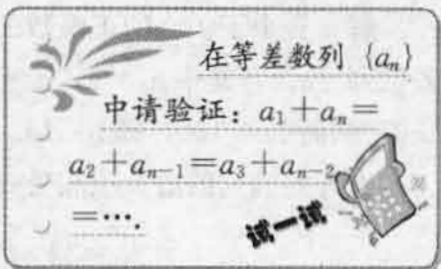 在等差数列 {aₙ}
中请验证：a₁+aₙ=
a₂+aₙ₋₁=a₃+aₙ₋₂
=….
试一试